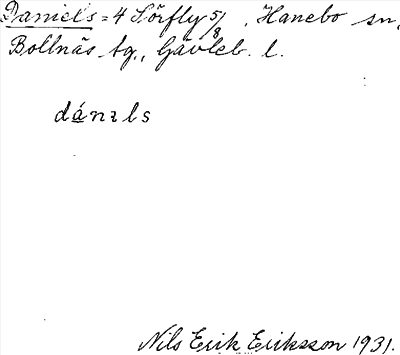 Daniels = 4 Sörfly 5/8, Hanebo sn,
Bollnäs tg., Gävleb. l.
dánɪls
Nils Erik Eriksson 1931.